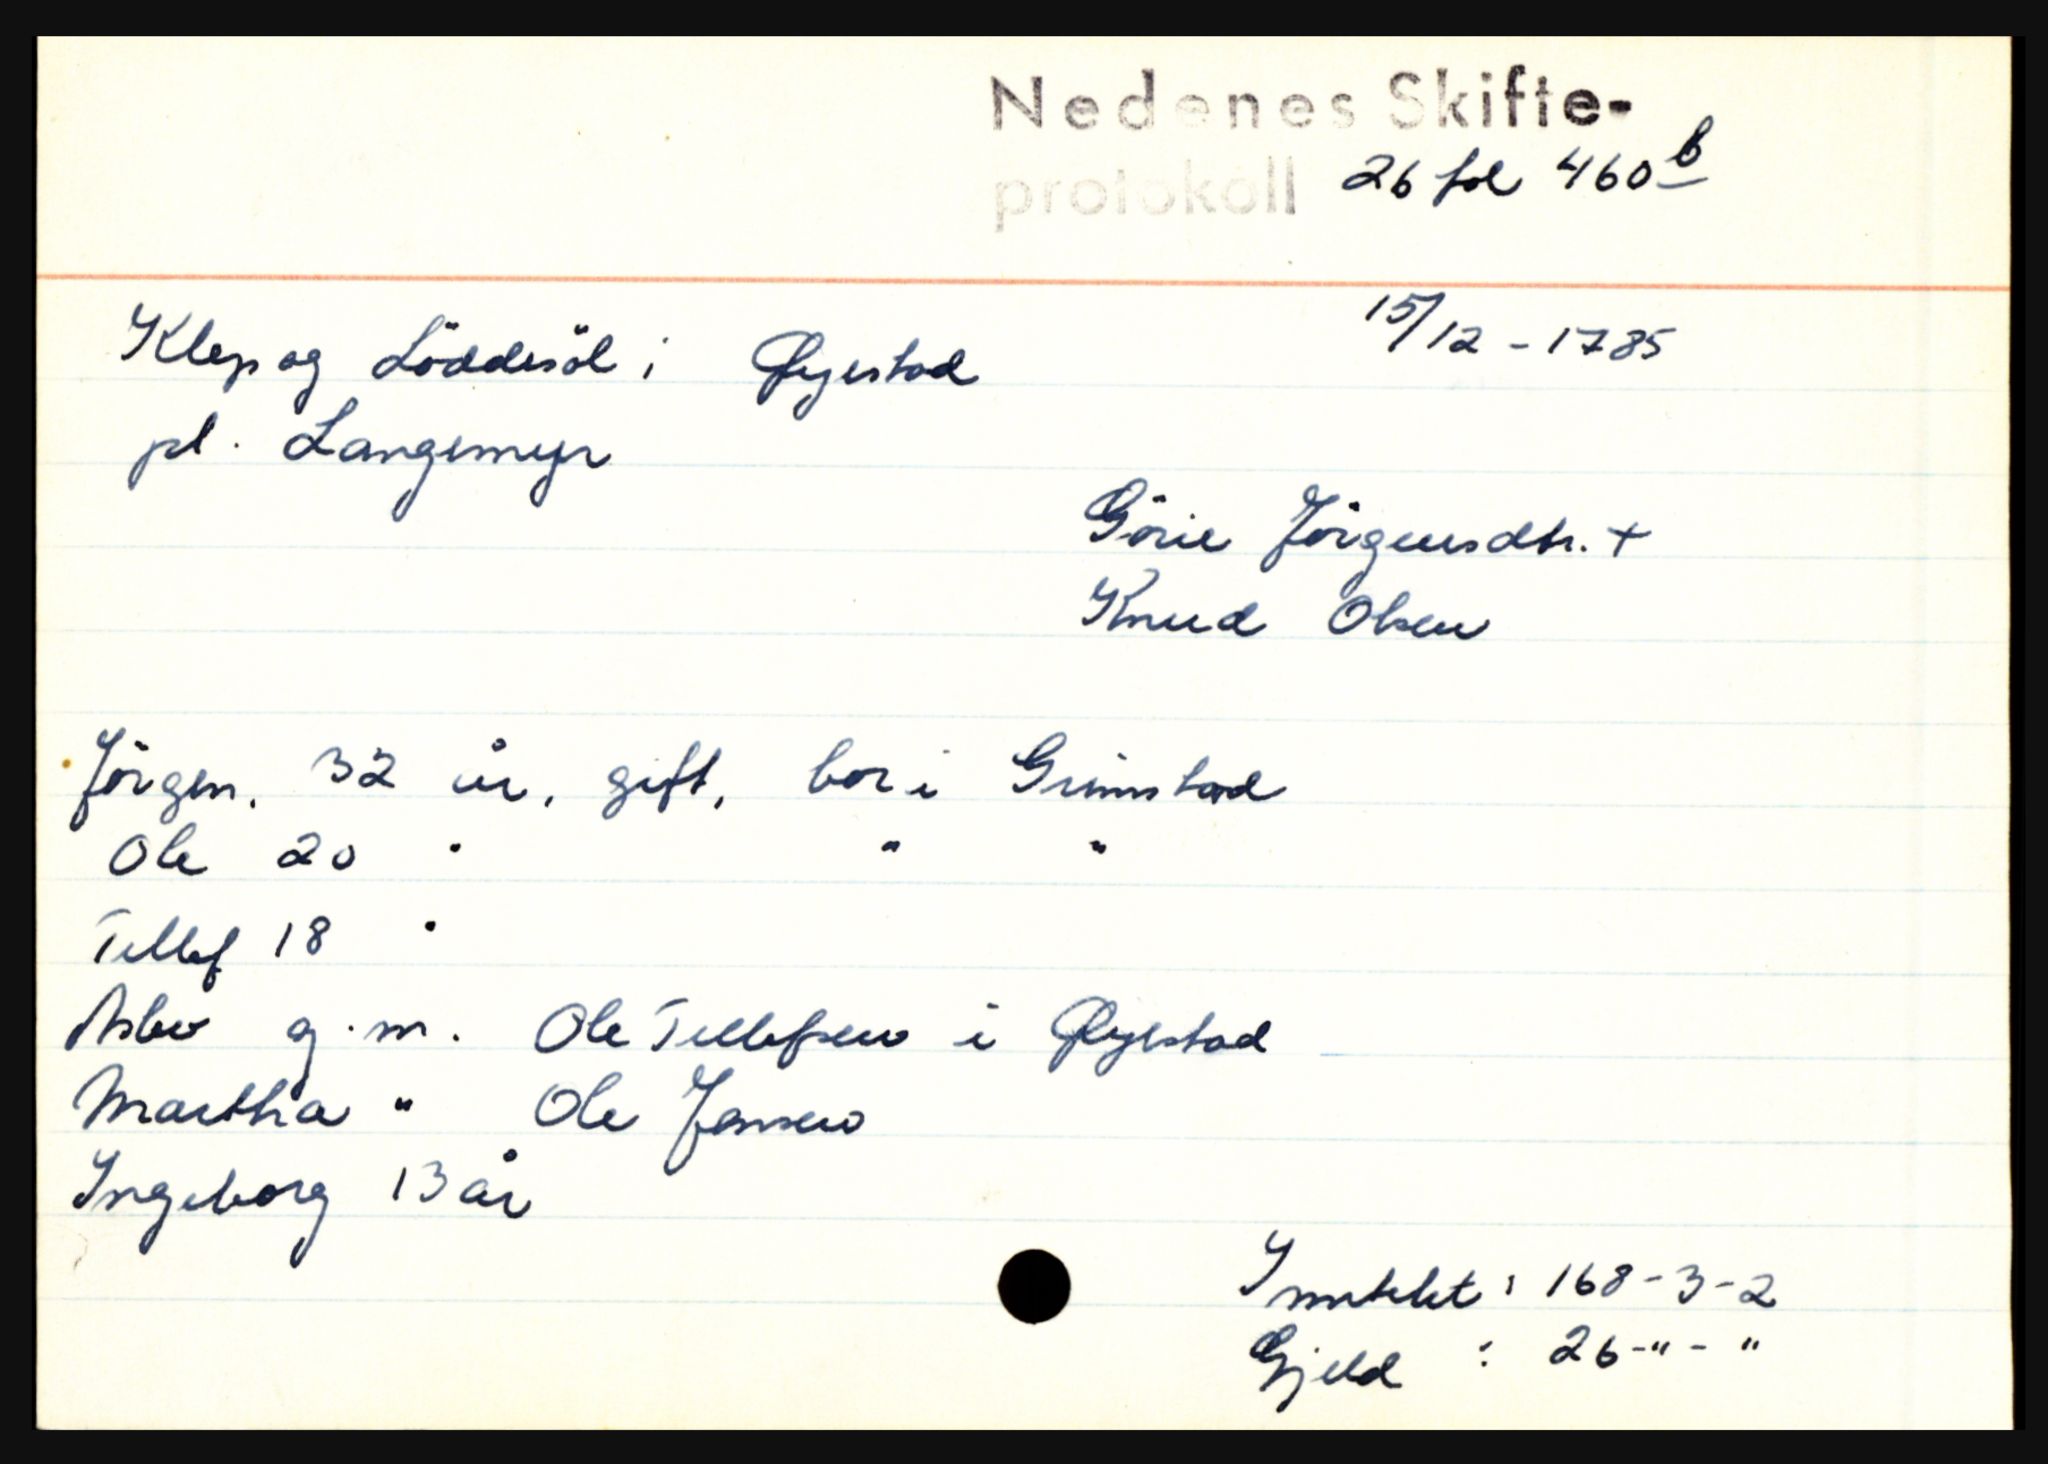 Nedenes Skifte-
protokoll 26 fol 460 b
15/12 - 1785
Klep og Löddesöl i Øyestad
pl. Langemyr
Görie Jörgensdtr. +
Knud Olsen
Jörgen, 32 år, gift, bor i Grimstad
Ole 20 " " "
Tellef 18 "
Asbor g.m. Ole Tellefsen i Øyestad
Martha " Ole Jensen
Ingeborg 13 år
Inntekt: 168-3-2
Gjeld : 26-"-"